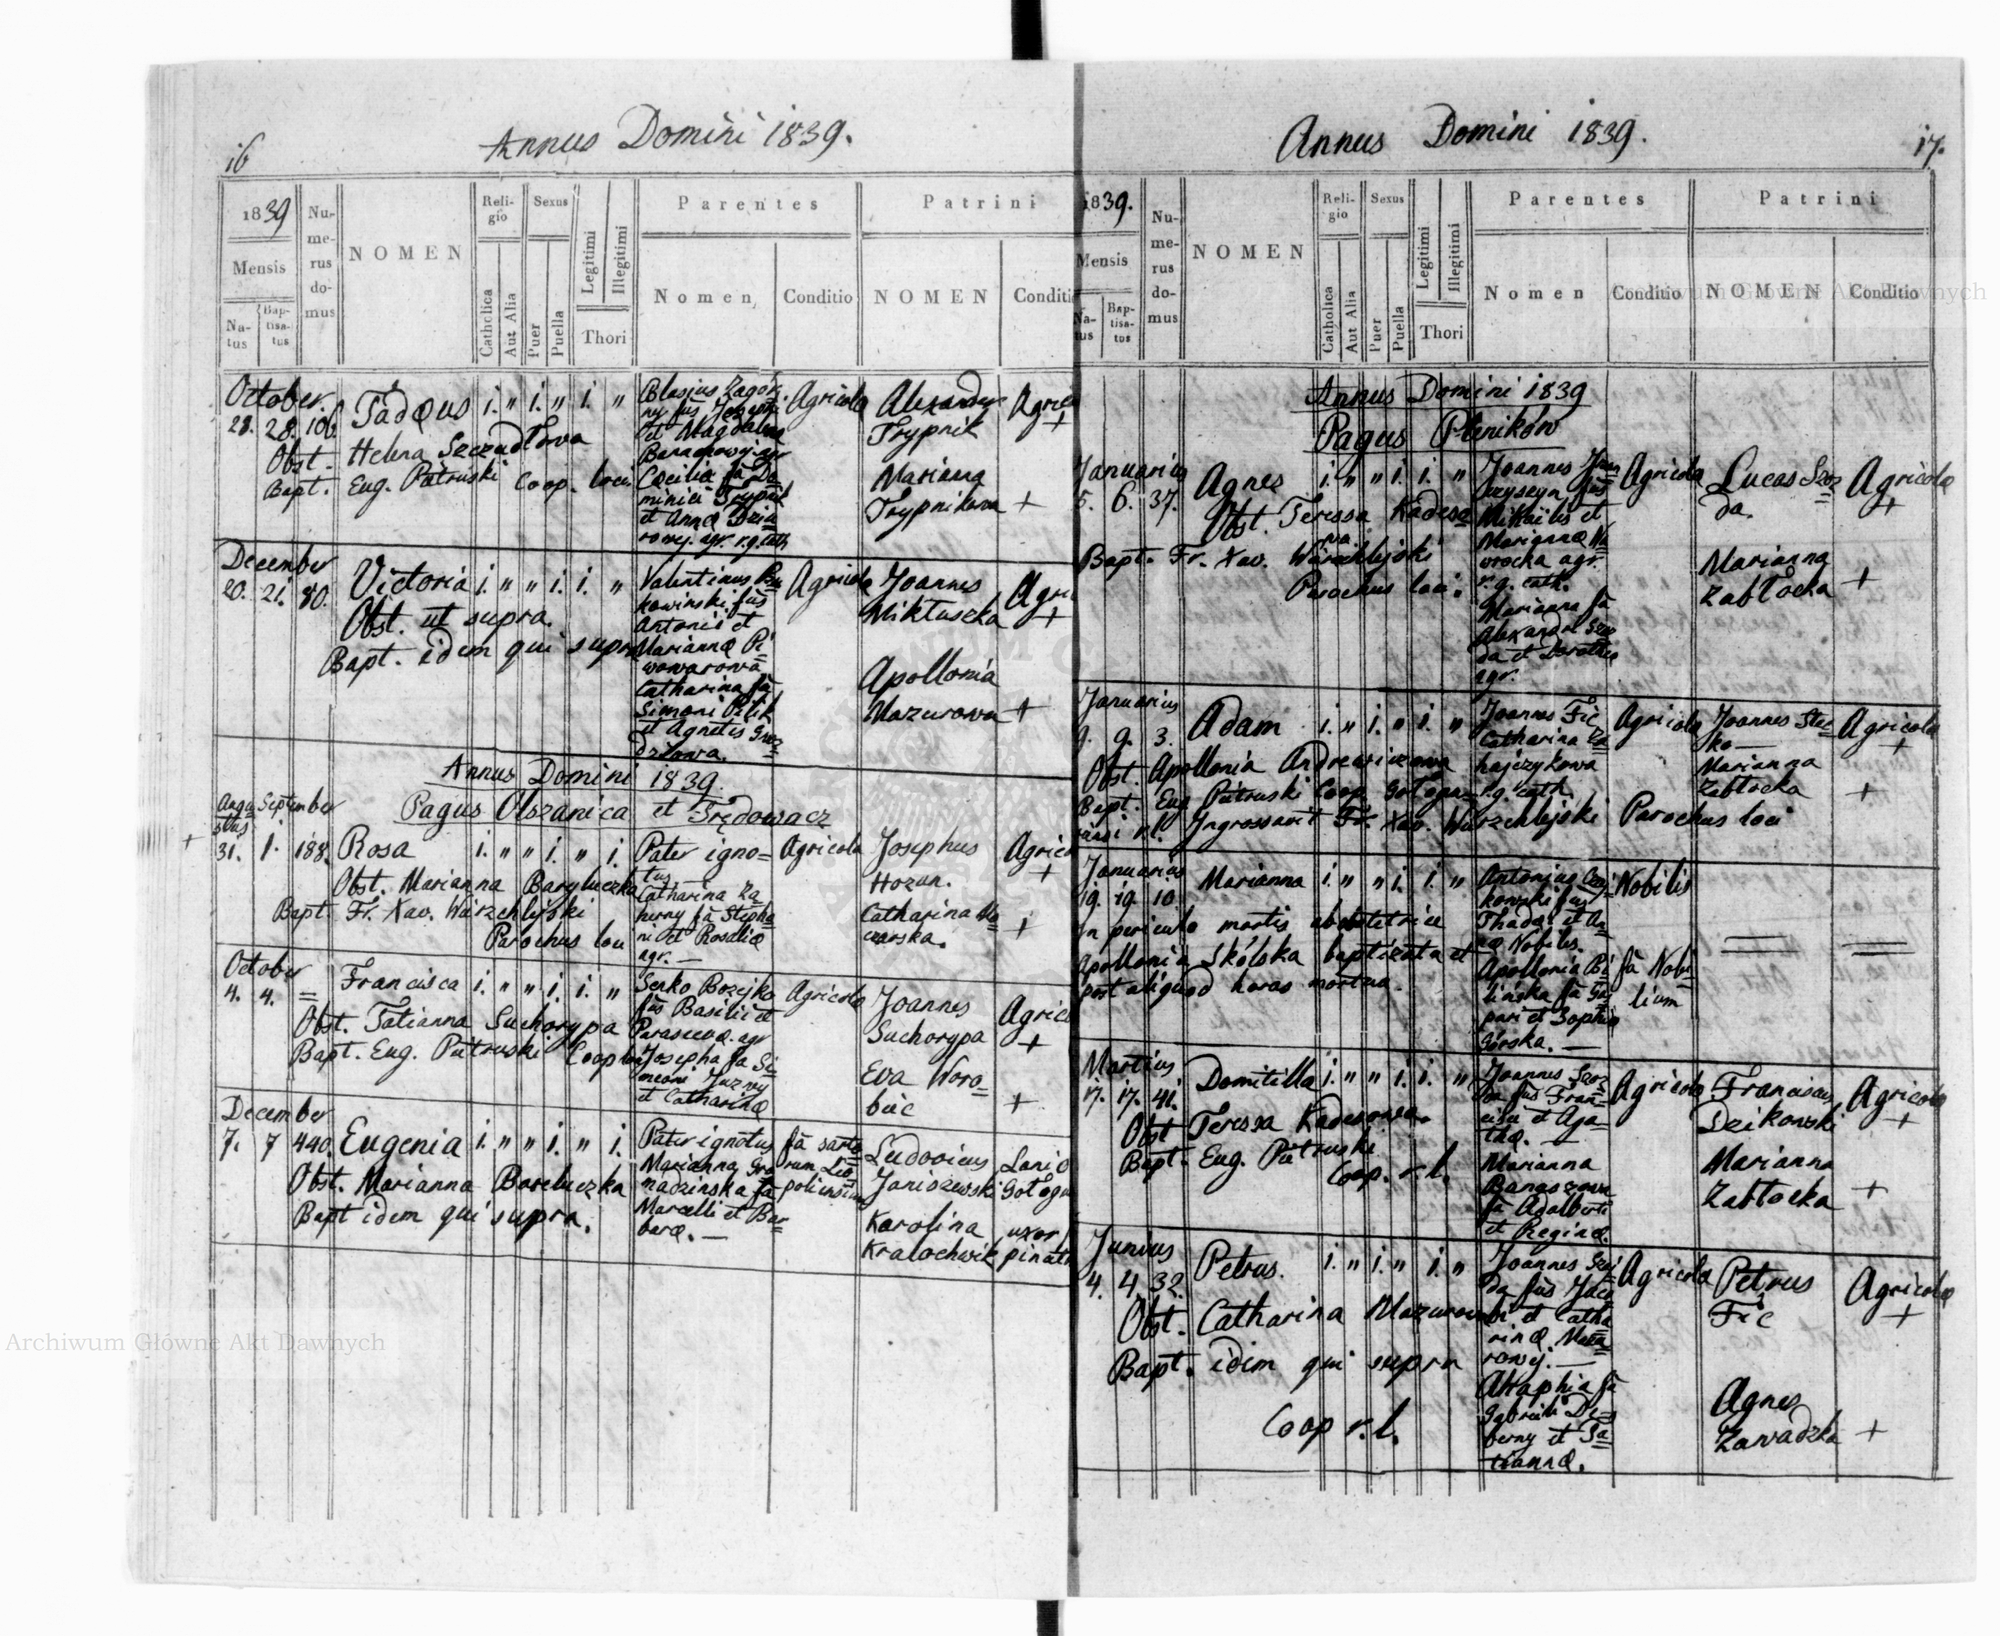 16
Annus Domini 1839.
1839
Mensis
Na-
tus
Bap-
tisa-
tus
Nu-
me-
rus
do-
mus
NOMEN
Reli-
gio
Catholica
Aut Alia
Sexus
Puer
Puella
Legitimi
Illegitimi
Thori
Parentes
Nomen
Conditio
Patrini
NOMEN
Conditi
October.
28. 28. 106. Tadæus i. " i. " i. "
Obst. Helena Szczudłowa
Bapt. Eug. Pietruski Coop. loci
Blasius Zagór
ny
et Magdalena
Cæcilia fa Do
minici Trypnik
et Anna
agr. r.g. cath
Agricola
Alexander
Trypnik
Marianna
Trypnikowa
Agric
+
+
December
20. 21. 80. Victoria i. " " i. i. "
Obst. ut supra.
Bapt. idem qui supra
Valentinus Bu
kowinski fūs
Antonii et
Mariannæ Pi
wowarowa
Catharina fā
Simoni Pitik
et Agnetis
Agricola
Joannes
Miktuszka
Apollonia
Mazurowa
Agri
+
+
Annus Domini 1839.
Pagus Olszanica et Trędowacz
Augu
stus September
31. 1. 188. Rosa i. " " i. " i.
Obst. Marianna Baryluczka
Bapt. Fr. Xav. Wárzchlyski
Parochus loci
Pater igno=
tus
Catharina Za
herny fā Stepha
ni et Rosaliæ
agr. —
Agricola
Josephus
Hozan.
Catharina
Agric
+
+
October
4. 4. = Francisca i. " " i. i. "
Obst. Tatianna Suchorypa
Bapt. Eug. Pietruski Coop loci
Senko Bozejko
fūs Basilii et
Parascevæ agr
Josepha fa Si=
meoni
et Catharinæ
Agricola
Joannes
Suchorypa
Eva Woro=
biec
Agric
+
+
December
7. 7 440. Eugenia i. " " i. " i.
Obst. Marianna Bareluczka
Bapt idem qui supra.
Pater ignotus
Marianna Gro
madzinska fā
Marcelli et Bar
baræ. —
fā sarto
rum Leo
poliensium
Ludovicus
Janiszewski
Karolina
Kratochwik
Lanio
Gołogu
uxor
pinat
Annus Domini 1839.
17.
1839.
Mensis
Na-
tus
Bap-
tisa-
tus
Nu-
me-
rus
do-
mus
NOMEN
Reli-
gio
Catholica
Aut Alia
Sexus
Puer
Puella
Legitimi
Illegitimi
Thori
Parentes
Nomen
Conditio
Patrini
NOMEN
Conditio
Annus Domini 1839
Pagus Plenikow
Januarius
5. 6. 37. Agnes i. " " i. i. "
Obst. Teressa Kadeso
wa
Bapt. Fr. Xav. Wárzchlejski
Parochus loci.
Joannes
fūs
Mikaëlis et
Mariannæ Na
wrocka agr.
r.g. cath.
Marianna fā
Alexandri Szoz
da et Dorothea
agr.
Agricola
Lucas Szoz
da.
Marianna
Zabłocka
Agricola
+
+
Januarius
9. 9. 3. Adam i. " i. " i. "
Obst. Apollonia Andrewiczowa
Bapt. Eug Pietruski Coop Gołogu=
r.l. Ingrossavit Fr. Xav. Wárzchlejski Parochus loci
Joannes Fic
Catharina Za
hajczykowa
r.g. cath.
Agricola
Joannes Stec
ko —
Marianna
Zabłocka
Agricola
+
+
Januarius
19. 19 10. Marianna i. " " i. i. "
In periculo mortis ab obstetrice
Apollonia Skólska baptizata et
post aliquod horas mortua.
Antonius
kowski fūs
Thadæi et An
næ Nobilis.
Apollonia Bi
linska fā Gas
pari et Sophia
Górska. —
Nobilis
fā Nobi
lium
Martius
17. 17. 41. Domitilla i. " " i. i. "
Obst Teressa Kadesowa.
Bapt. Eug. Pietruski
Coop. r. l.
Joannes Szoz
da fūs Fran=
cisci et Aga=
thæ. —
Marianna
Banaszowa
fā Adalberti
et Reginæ.
Agricola
Franciscus
Dzikowski
Marianna
Zabłocka
Agricola
+
+
Junius
4. 4 32. Petrus. i. " i. " i. "
Obst. Catharina Mazurowa
Bapt. idem qui supra
Coop r. l.
Joannes Szoz
da fūs Jaco
bi et Catha
rinæ Mazu
rowej. —
Ahaphia fā
Gabrieli De=
berny et Ta
tiannæ.
Agricola
Petrus
Fic
Agnes
Zawadzka
Agricola
+
+
Archiwum Główne Akt Dawnych
Archiwum Główne Akt Dawnych